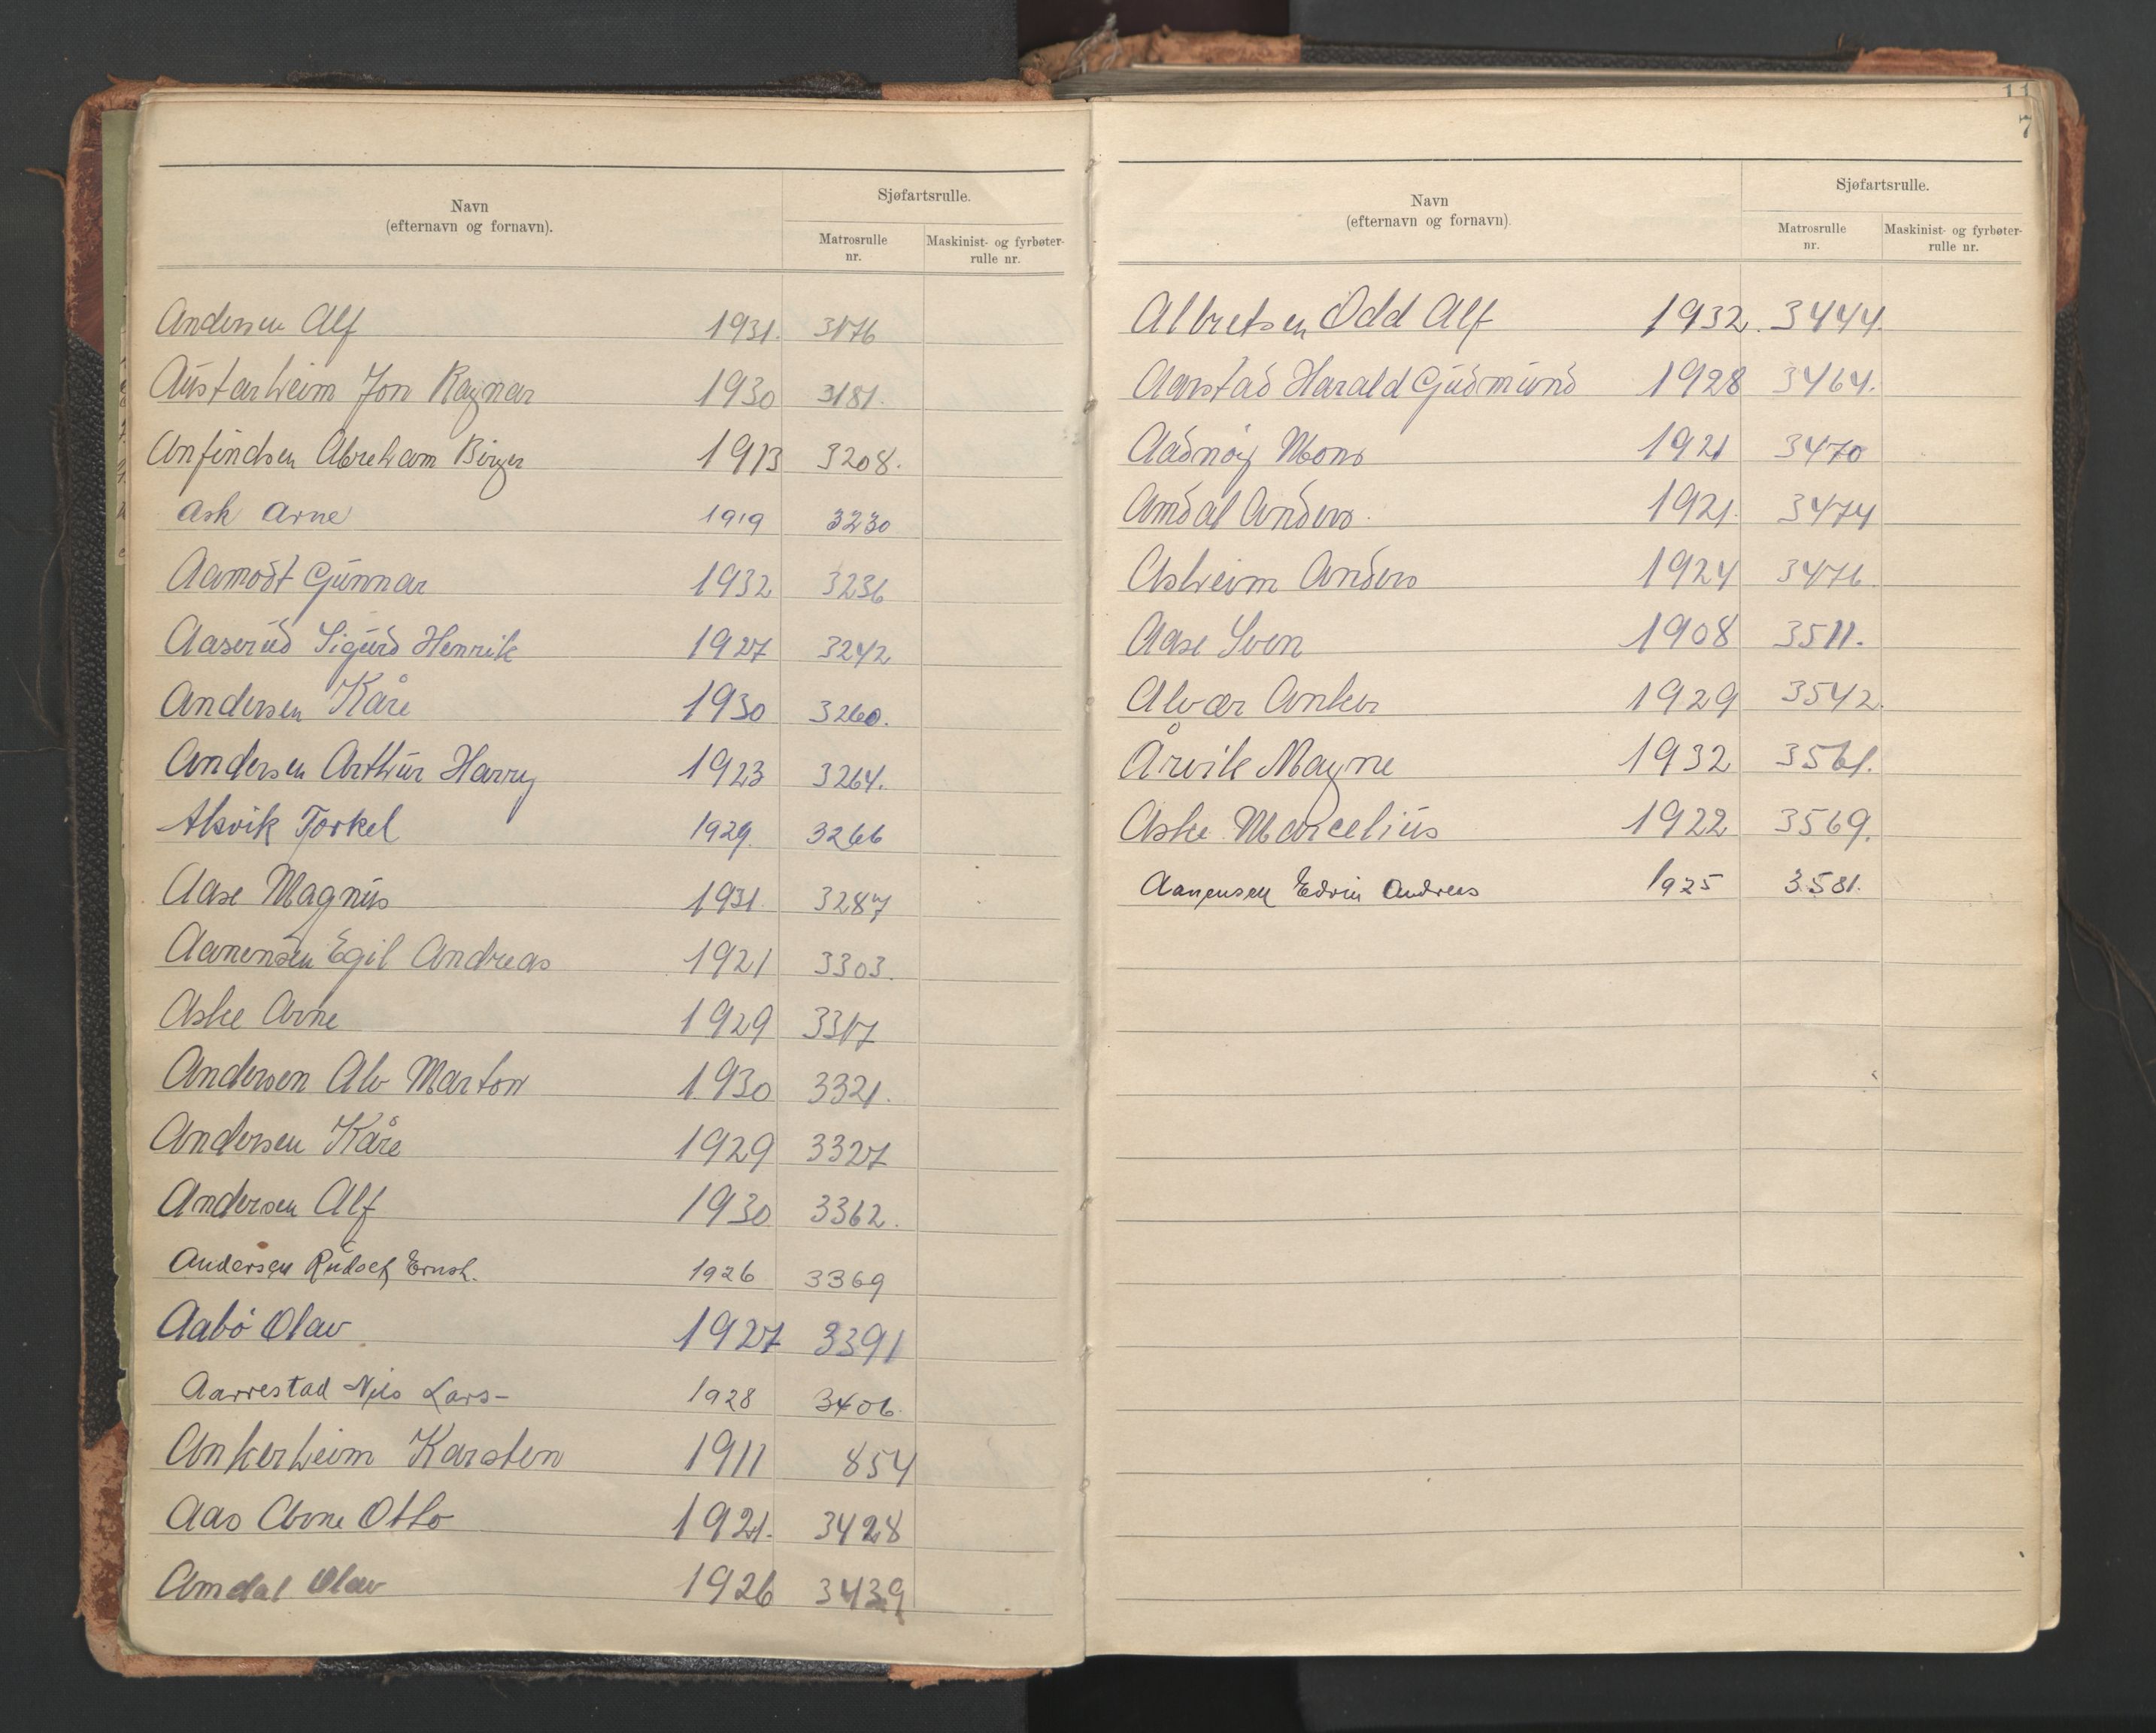 Navn
(efternavn og fornavn).
Sjøfartsrulle.
Matrosrulle
nr.
Maskinist- og fyrbøter-
rulle nr.
Andersen Alf 1931. 3176
Austarheim Jon Ragnar 1930 3181.
Anfindsen Abreham Birger 1913 3208.
Ask Arne 1919 3230
Aamodt Gunnar 1932 3236
Aaserud Sigurd Henrik 1927 3242
Andersen Kåre 1930 3260.
Andersen Arthur Harry 1923 3264.
Akvik Torkel 1929. 3266
Aase Magnus 1931. 3287
Aanensen Egil Andreas 1921 3303.
Aske Arne 1929 3317
Andersen Alv Marton 1930 3321.
Andersen Kåre 1929 3327
Andersen Alf 1930 3362.
Andersen Rudolf Ernst. 1926 3369
Aabö Olav 1927 3391
Aarrestad Nils Lars- 1928 3406.
Ankerheim Karsten 1911 854
Aas Arne Otto 1921. 3428
Amdal Olav 1926 3439
11
7
Navn
(efternavn og fornavn).
Sjøfartsrulle.
Matrosrulle
nr.
Maskinist- og fyrbøter-
rulle nr.
Albretsen Odd Alf 1932. 3444.
Aarstad Harald Gudmund 1928 3464.
Aadnöy Mons 1921 3470
Amdal Anders. 1921. 3474
Asheim Anders 1924 3476.
Aase Sven 1908 3511.
Alvær Anker 1929 3542.
Årvik Magne 1932 3561.
Aske Marcelius 1922 3569.
Aanensen Edvin Andreas 1925 3581.